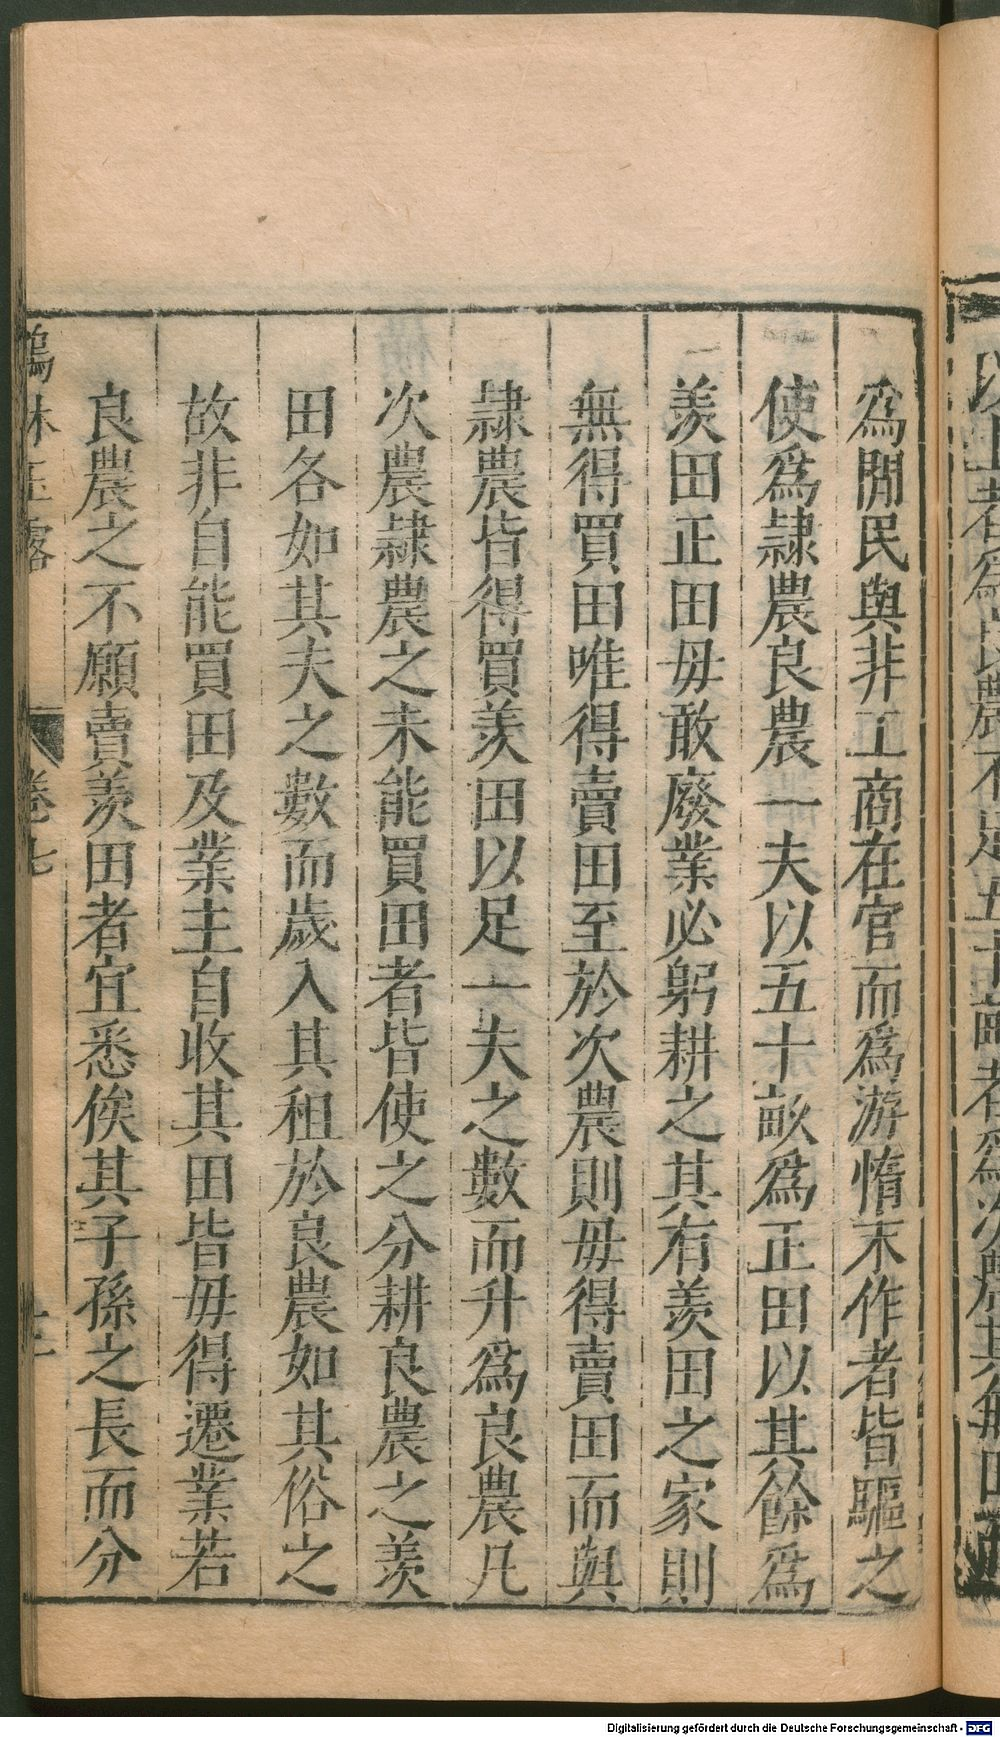 爲閒民與非工商在官而爲游惰末作者皆驅之
使爲隷農良農一夫以五十畝爲正田以其餘爲
羨田正田毋敢廢業必躬耕之其有羨田之家則
無得買田唯得賣田至於次農則毋得賣田而與
隷農皆得買羨田以足一夫之數而升爲良農凡
次農隷農之未能買田者皆使之分耕良農之羨
田各如其夫之數而歲入其租於良農如其俗之
故非自能買田及業主自收其田皆毋得遷業若
良農之不願賣羨田者宜悉俟其子孫之長而分
林玉露 卷七
Digitalisierung gefördert durch die Deutsche Forschungsgemeinschaft - DFG